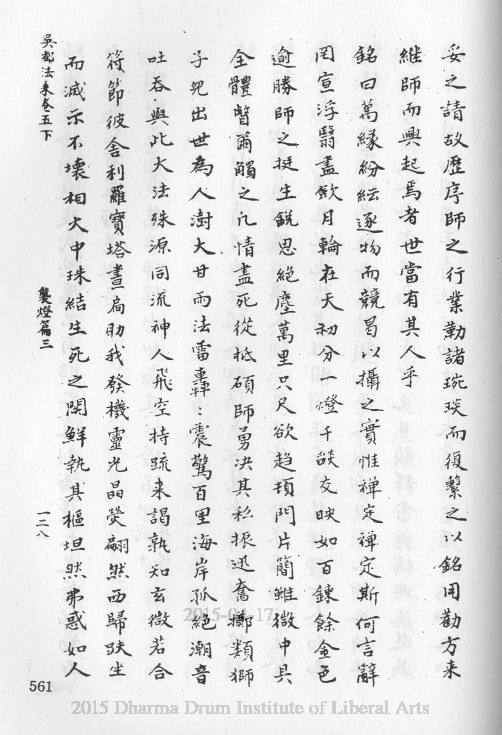 妥之請故歷序師之行業勒諸琬琰而復繫之以銘用勸方来
繼師而興起焉者世當有其人乎
銘曰萬緣紛紜逐物而競曷以攝之實惟禅定禅定斯何言辭
罔宣浮翳盡歛月輪在天初分一燈千燄交映如百鍊餘金色
逾勝師之挺生銳思絕塵萬里只尺欲趍頂門片簡雖微中具
全體瞥爾觸之凡情盡死從抵碩師勇決其私振迅奮擲類獅
子兒出世為人澍大甘雨法雷轟〻震驚百里海岸孤絕潮音
吐吞與此大法殊源同流神人飛空持疏来謁孰知玄微若合
符節彼舍利羅寶塔晝扃助我發機靈光晶熒翩然西歸趺坐
而滅示不壞相火中珠結生死之関鮮執其樞坦然弗惑如人
吳都法乗卷五下
雙燈篇三
一二八
561
2015-04-17
2015 Dharma Drum Institute of Liberal Arts